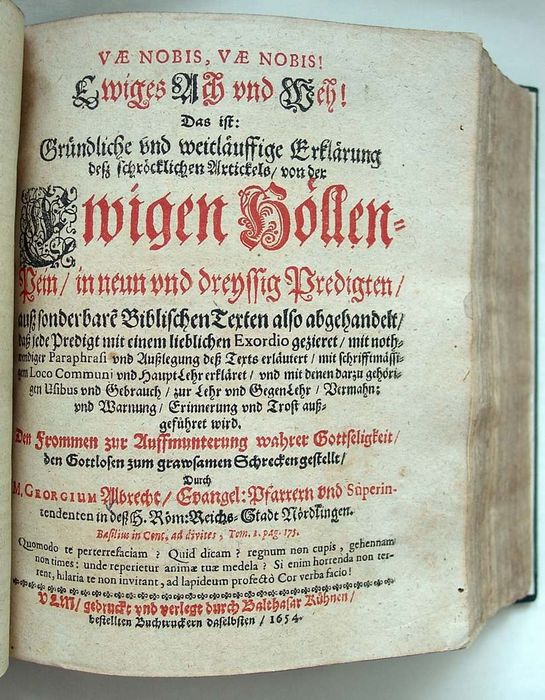 VÆ NOBIS, VÆ NOBIS!
Ewiges Ach vnd Weh!
Das ist:
Gründliche vnd weitläuffige Erklärung
deß schröcklichen Artickels/ von der
Ewigen Höllen-
Pein/ in neun vnd dreyssig Predigten/
auß sonderbarē Biblischen Texten also abgehandelt/
daß jede Predigt mit einem lieblichen Exordio gezieret/ mit noth-
wendiger Paraphrasi vnd Außlegung deß Texts erläutert/ mit schrifftmässi-
gem Loco Communi vnd HauptLehr erkläret/ vnd mit denen darzu gehöri-
gen Usibus vnd Gebrauch/ zur Lehr vnd GegenLehr/ Vermahn:
vnd Warnung/ Erinnerung vnd Trost auß-
geführet wird.
Den Frommen zur Auffmunterung wahrer Gottseligkeit/
den Gottlosen zum grawsamen Schrecken gestellt/
Durch
M. GEORGIUM Albrecht/ Evangel: Pfarrern vnd Superin-
tendenten in deß H. Röm: Reichs-Stadt Nördlingen.
Basilius in Conc. ad divites, Tom. 1. pag. 173.
Quomodo te perterrefaciam? Quid dicam? regnum non cupis, gehennam
non times: unde reperietur animæ tuæ medela? Si enim horrenda non ter-
rent, hilaria te non invitant, ad lapideum profectò Cor verba facio!
VLM/ gedruckt vnd verlegt durch Balthasar Kühnen/
bestellten Buchtruckern daselbsten/ 1654.